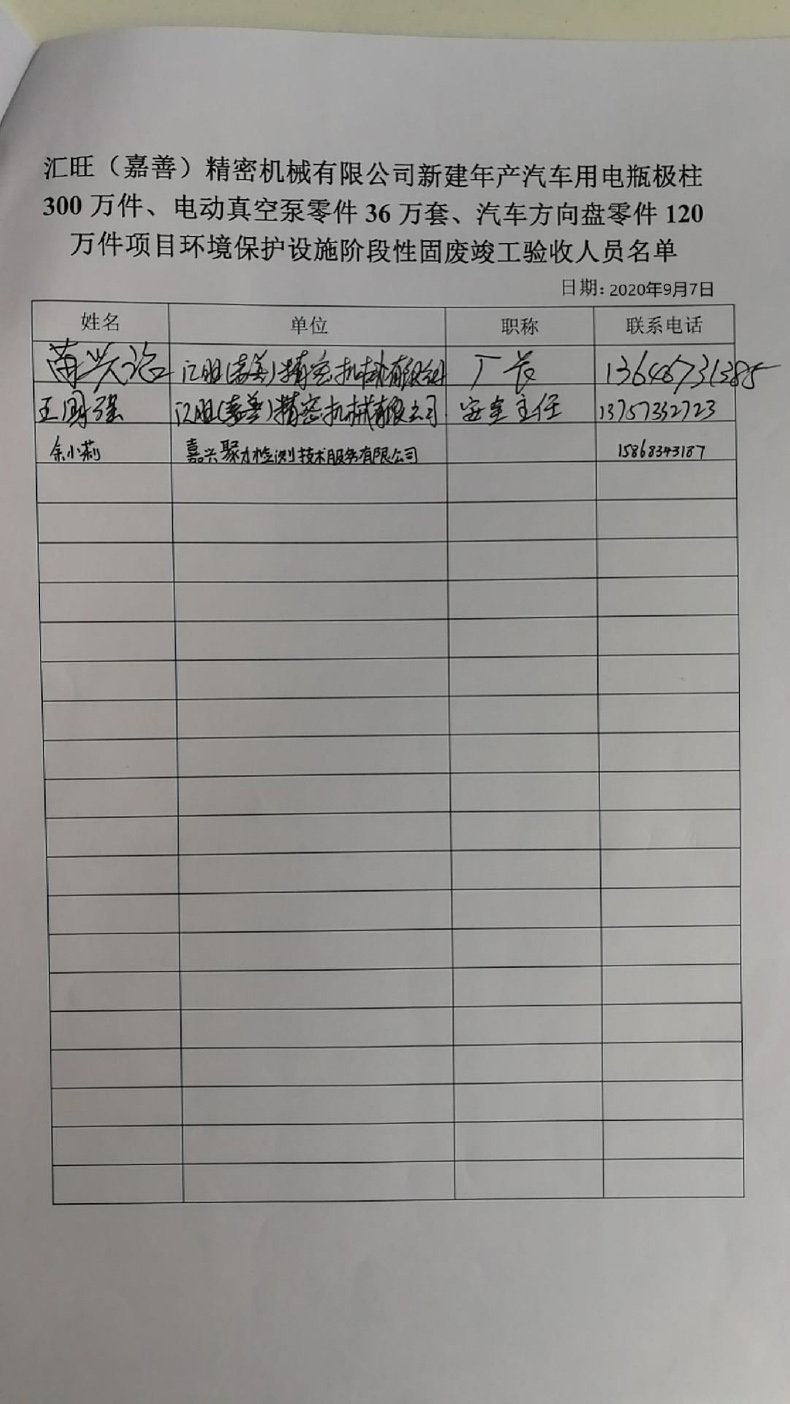 汇旺（嘉善）精密机械有限公司新建年产汽车用电瓶极柱
300 万件、电动真空泵零件 36 万套、汽车方向盘零件 120
万件项目环境保护设施阶段性固废竣工验收人员名单
日期：2020年9月7日
姓名 单位 职称 联系电话
汇旺(嘉善)精密机械有限公司 厂长
王国强 汇旺(嘉善)精密机械有限公司 安全主任 13757332723
余小莉 嘉兴聚力检测技术服务有限公司 15868343187